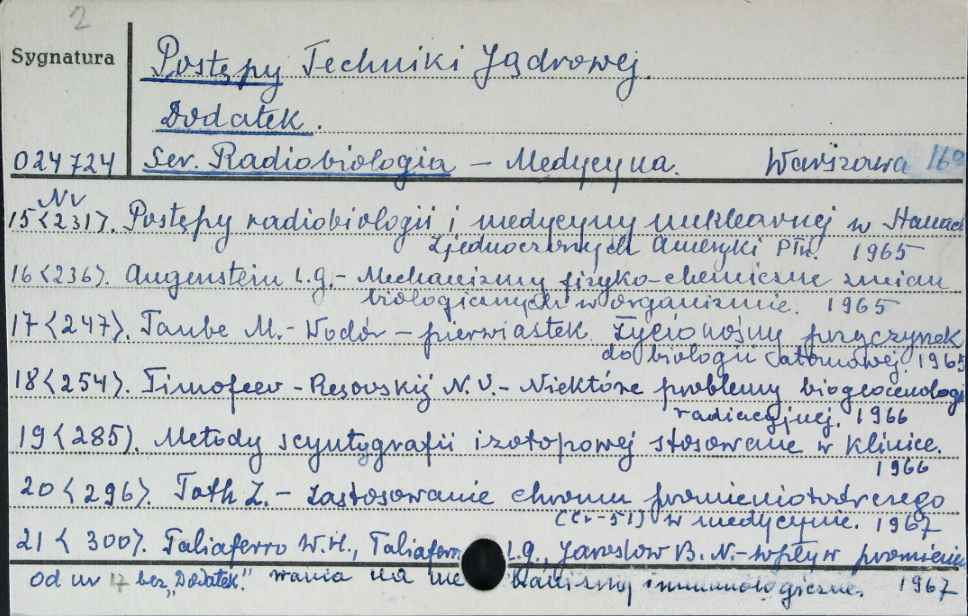 2
Sygnatura
Postępy Techniki Jądrowej.
Dodatek.
024724 Ser. Radiobiologia – Medycyna. Warszawa
Nr
15<231>. Postępy radiobiologii i medycyny nuklearnej w Stanach
Zjednoczonych Ameryki Płn. 1965
16<236>. Augenstein L.G.- Mechanizmy fizyko-chemiczne zmian
biologicznych w organizmie. 1965
17<247>. Taube M.- Wodór – pierwiastek życionośny przyczynek
do biologii atomowej. 1965
18<254>. Timofeev-Resovskij N.V.- Niektóre problemy biogeocenologii
radiacyjnej. 1966
19<285). Metody scyntygrafii izotopowej stosowane w klinice.
1966
20<296>. Toth Z.- Zastosowanie chromu promieniotwórczego
(Cr-51) w medycynie. 1967
21<300>. Taliaferro W.H., Taliaferro L.G., Jaroslow B.N.-Wpływ promienio
wania na mechanizmy immunologiczne. 1967
Od nr 17 bez „Dodatek."